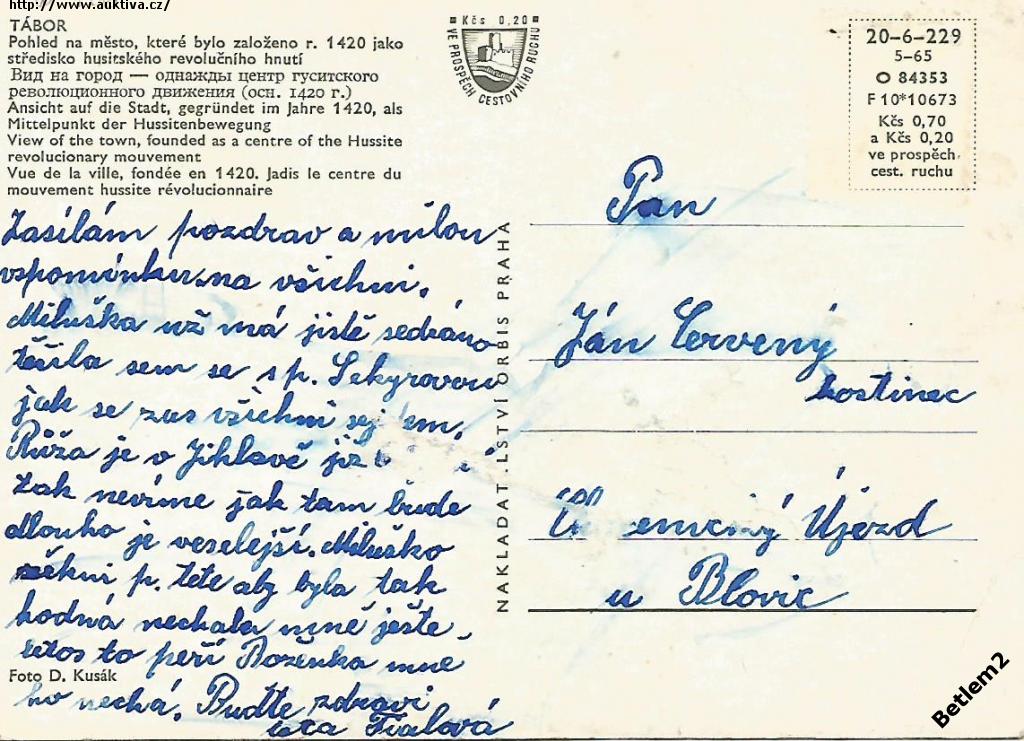 http://www.auktiva.cz/
TÁBOR
Pohled na město, které bylo založeno r. 1420 jako
středisko husitského revolučního hnutí
Вид на город — однажды центр гуситского
революционного движения (осн. 1420 г.)
Ansicht auf die Stadt, gegründet im Jahre 1420, als
Mittelpunkt der Hussitenbewegung
View of the town, founded as a centre of the Hussite
revolutionary mouvement
Vue de la ville, fondée en 1420. Jadis le centre du
mouvement hussite révolucionnaire
Kčs 0,20
VE PROSPĚCH CESTOVNÍHO RUCHU
20-6-229
5-65
O 84353
F 10*10673
Kčs 0,70
a Kčs 0,20
ve prospěch
cest. ruchu
Zasílám pozdrav a milou
vspomínku na všichni.
Miluška už má jistě sedráno
těšila sem se s p. Sekyrovou
jak se zas všichni
Růža je v Jihlavě již
tak nevíme jak tam bude
dlouho je veselejší. Miluško
řekni p. tete aby byla tak
hodná nechala mně ješte
letos to peří Boženka mne
ho nechá. Buďte zdravi
teta Fialová
Foto D. Kusák
NAKLADATELSTVÍ ORBIS PRAHA
Pan
Ján Červený
hostinec
Újezd
u Blovic
Betlem2